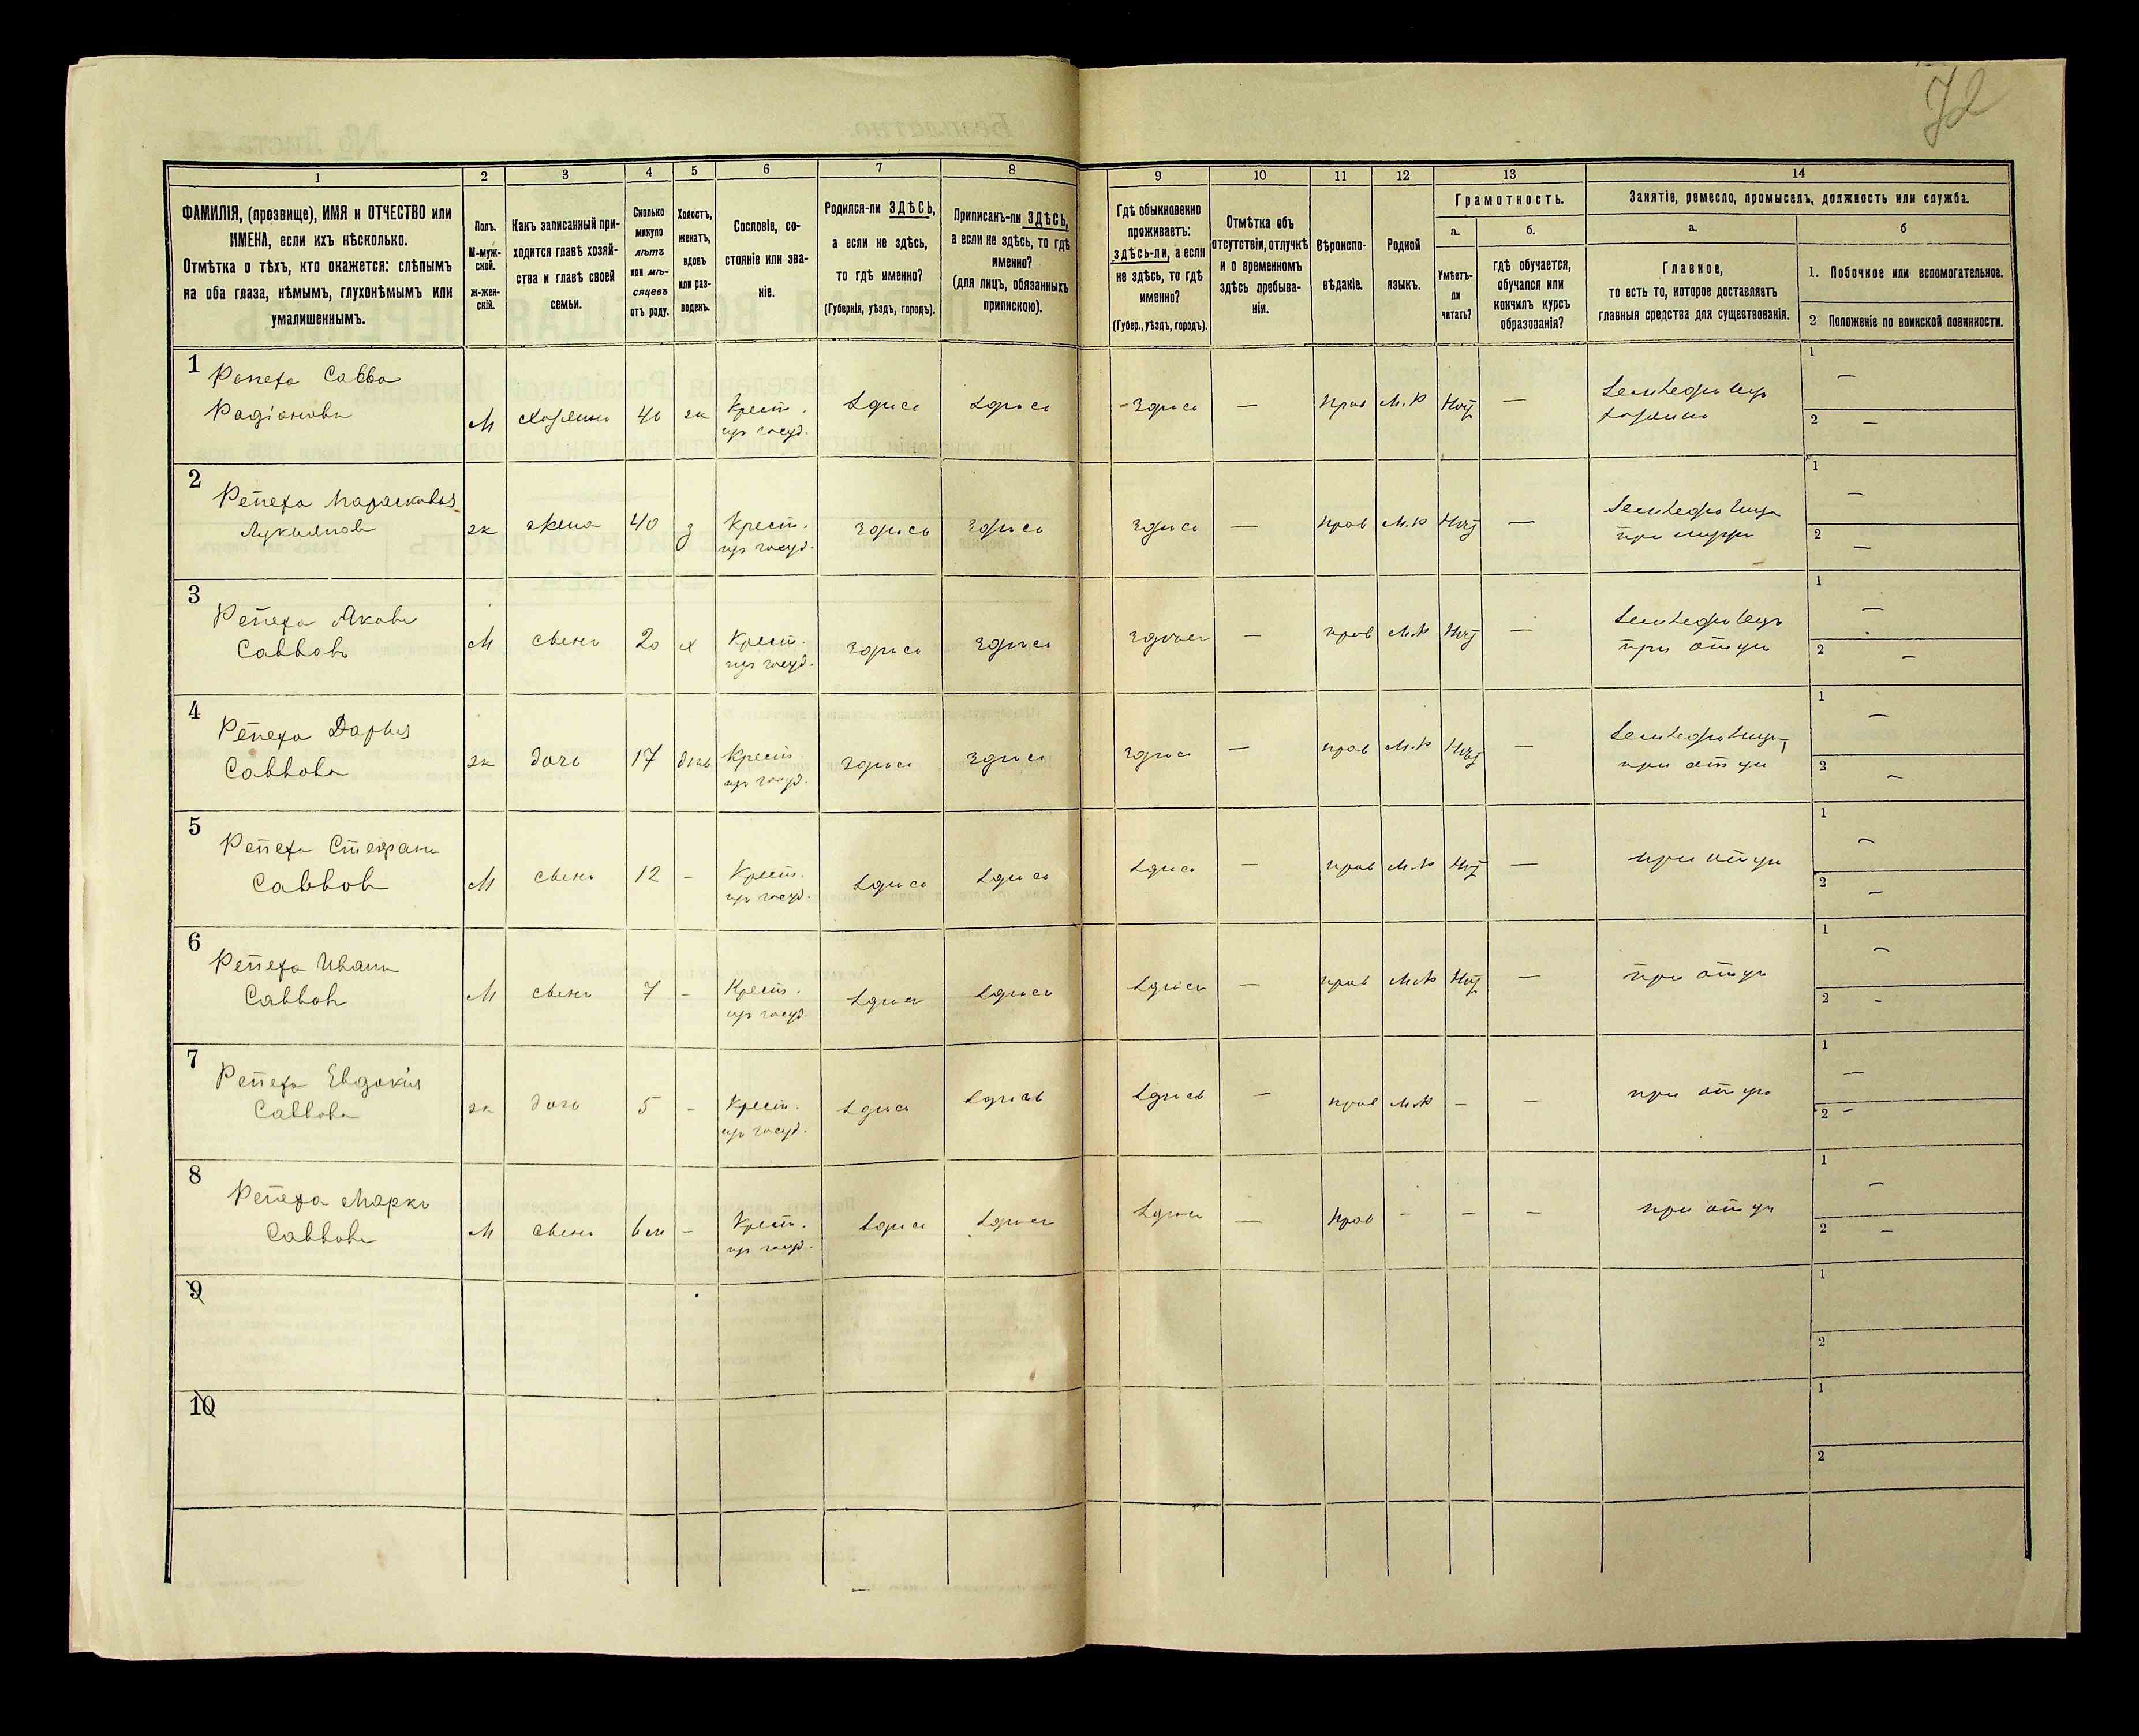 72
1 2 3 4 5 6 7 8 9 10 11 12 13 14
ФАМИЛІЯ, (прозвище), ИМЯ и ОТЧЕСТВО или
ИМЕНА, если ихъ нѣсколько.
Отмѣтка о тѣхъ, кто окажется: слѣпымъ
на оба глаза, нѣмымъ, глухонѣмымъ или
умалишеннымъ.
Полъ.
М-муж-
ской.
ж-жен-
скій.
Какъ записанный при-
ходится главѣ хозяй-
ства и главѣ своей
семьи.
Сколько
минуло
лѣтъ
или мѣ-
сяцевъ
отъ роду.
Холостъ,
женатъ,
вдовъ
или раз-
веденъ.
Сословіе, со-
стояніе или зва-
ніе.
Родился-ли ЗДѢСЬ,
а если не здѣсь,
то гдѣ именно?
(Губернія, уѣздъ, городъ).
Приписанъ-ли ЗДѢСЬ,
а если не здѣсь, то гдѣ
именно?
(для лицъ, обязанныхъ
припискою).
Гдѣ обыкновенно
проживаетъ:
здѣсь-ли, а если
не здѣсь, то гдѣ
именно?
(Губер., уѣздъ, городъ).
Отмѣтка объ
отсутствіи, отлучкѣ
и о временномъ
здѣсь пребыва-
ніи.
Вѣроиспо-
вѣданіе.
Родной
языкъ.
Грамотность.
а.
Умѣетъ-
ли
читать?
б.
гдѣ обучается,
обучался или
кончилъ курсъ
образованія?
Занятіе, ремесло, промыселъ, должность или служба.
а.
Главное,
то есть то, которое доставляетъ
главныя средства для существованія.
б
1. Побочное или вспомогательное.
2 Положеніе по воинской повинности.
1 Репеха Савва
Радіоновъ М хозяинъ 46 ж Крест. здѣсь здѣсь здѣсь — прав М.Р Нѣтъ — земледѣлецъ 1 —
из госуд. хозяинъ 2 —
2 Репеха Парасковья
Лукьянова ж жена 40 з Крест. здѣсь здѣсь здѣсь — прав М.Р Нѣтъ — земледѣлица 1 —
из госуд. при мужѣ 2 —
3 Репеха Яковъ
Саввовъ М сынъ 20 х Крест. здѣсь здѣсь здѣсь — прав М.Р Нѣтъ — земледѣлецъ 1 —
из госуд. при отцѣ 2 —
4 Репеха Дарья
Саввова ж дочь 17 дѣв Крест. здѣсь здѣсь здѣсь — прав М.Р Нѣтъ — земледѣлица 1 —
из госуд. при отцѣ 2 —
5 Репеха Стефанъ
Саввовъ М сынъ 12 - Крест. здѣсь здѣсь здѣсь — прав М.Р Нѣтъ — при отцѣ 1 —
из госуд. 2 —
6 Репеха Иванъ
Саввовъ М сынъ 7 - Крест. здѣсь здѣсь здѣсь — прав М.Р Нѣтъ — при отцѣ 1 —
из госуд. 2 -
7 Репеха Евдокія
Саввова ж дочь 5 - Крест. здѣсь здѣсь здѣсь — прав М.Р - — при отцѣ 1 —
из госуд. 2 -
8 Репеха Марко
Саввовъ М сынъ 6 м - Крест. здѣсь здѣсь здѣсь — прав - - — при отцѣ 1 —
из госуд. 2 —
9 1
2
10 1
2